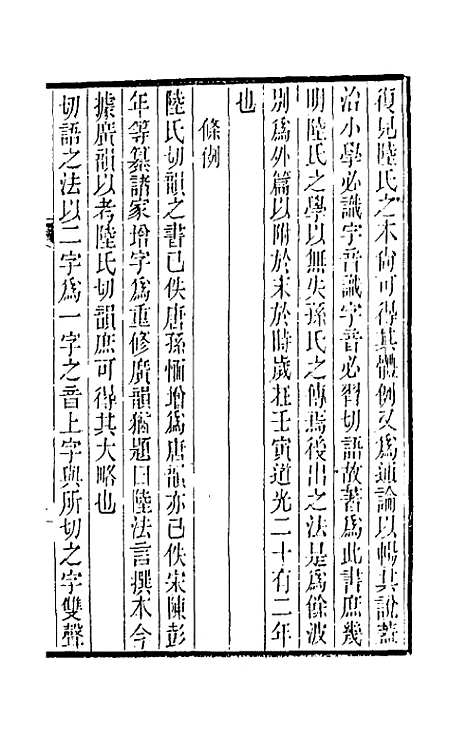 復見陸氏之本尙可得其體例又爲通論以暢其說蓋
治小學必識字音識字音必習切語故著爲此書庶幾
明陸氏之學以無失孫氏之傳焉後出之法是爲餘波
別爲外篇以附於末於時歲在壬寅道光二十有二年
也
條例
陸氏切韻之書已佚唐孫愐增爲唐韻亦已佚宋陳彭
年等纂諸家增字爲重修廣韻猶題曰陸法言撰本今
據廣韻以考陸氏切韻庶可得其大略也
切語之法以二字爲一字之音上字與所切之字雙聲